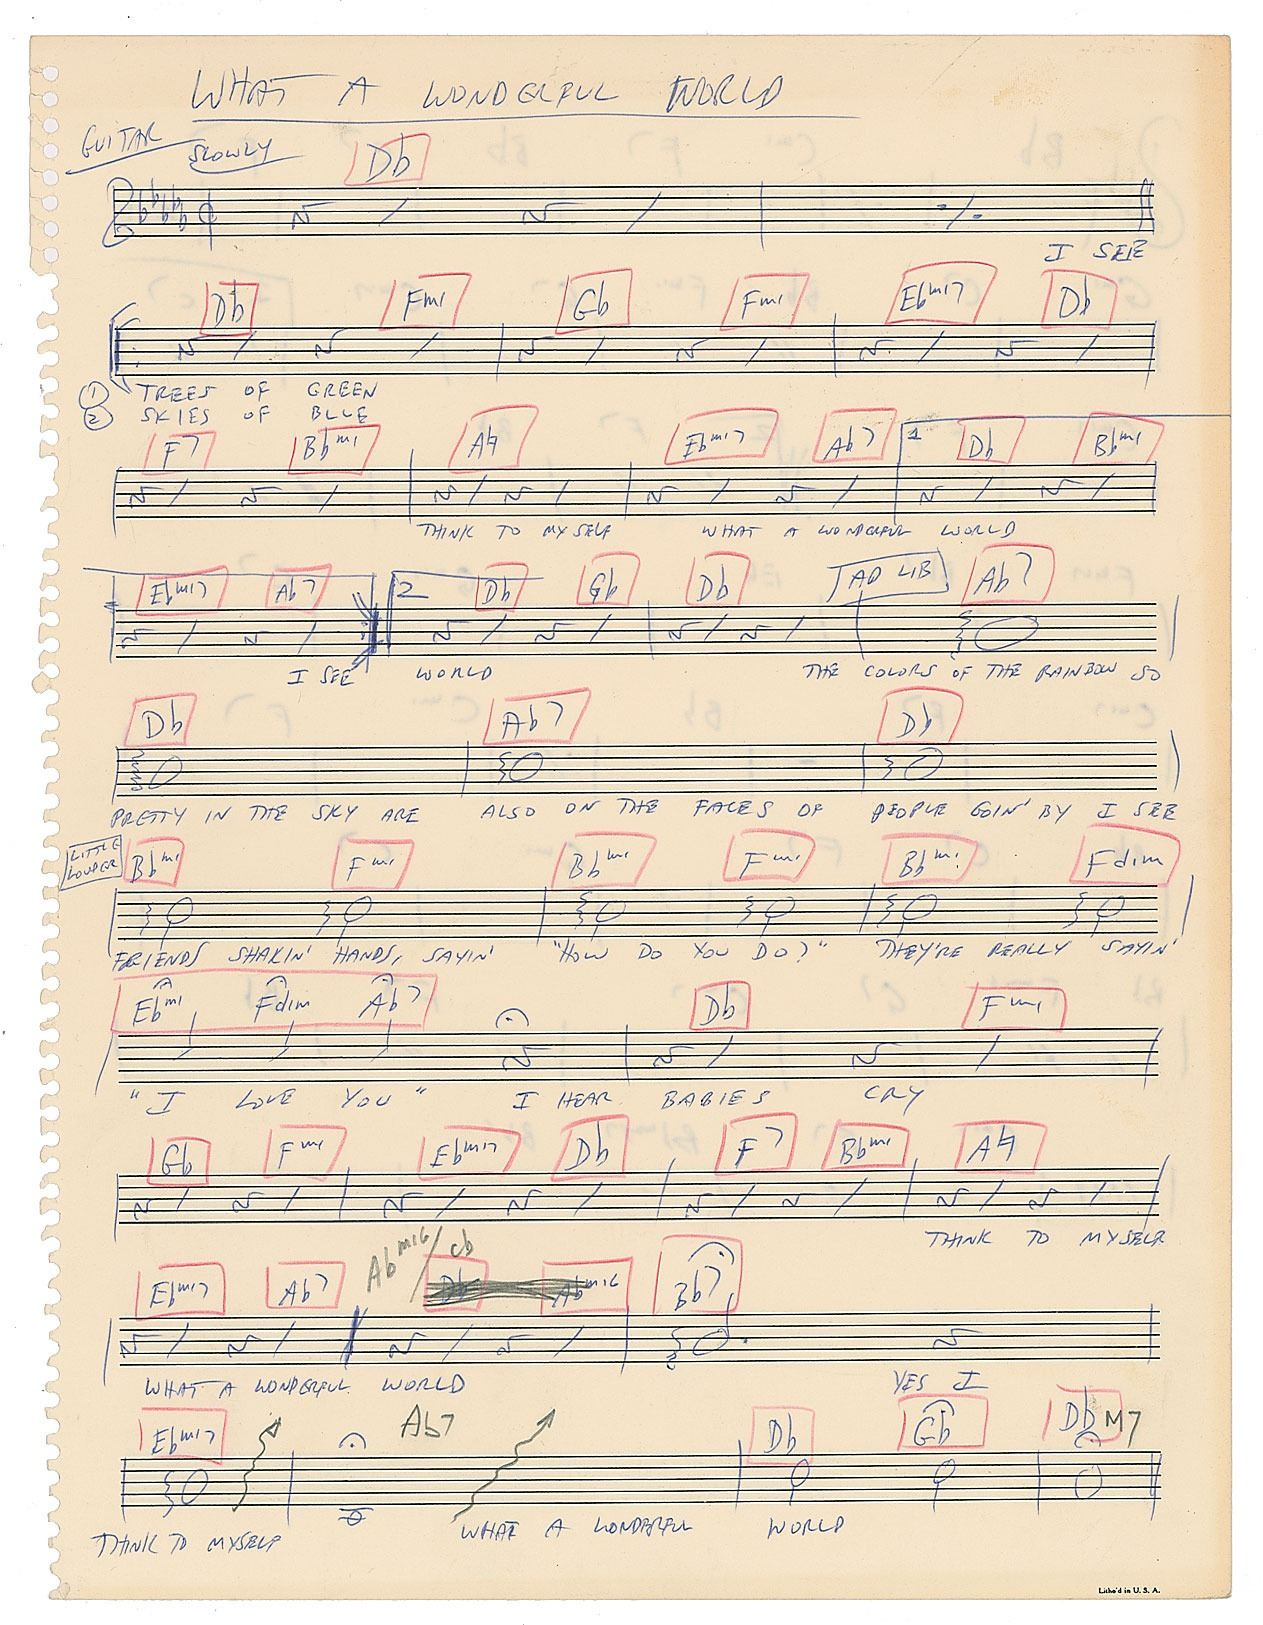 WHAT A WONDERFUL WORLD
GUITAR
SLOWLY Db
I SEE
Db Fmi Gb Fmi Ebmi7 Db
① TREES OF GREEN
② SKIES OF BLUE
F7 Bbmi A♮ Ebmi7 Ab7 1 Db Bbmi
THINK TO MYSELF WHAT A WONDERFUL WORLD
Ebmi7 Ab7 2 Db Gb Db AD LIB Ab7
I SEE WORLD THE COLORS OF THE RAINBOW SO
Db Ab7 Db
PRETTY IN THE SKY ARE ALSO ON THE FACES OF PEOPLE GOIN' BY I SEE
LITTLE LOUDER Bbmi Fmi Bbmi Fmi Bbmi Fdim
FRIENDS SHAKIN' HANDS, SAYIN' "HOW DO YOU DO?" THEY'RE REALLY SAYIN'
Ebmi Fdim Ab7 Db Fmi
"I LOVE YOU" I HEAR BABIES CRY
Gb Fmi Ebmi7 Db F7 Bbmi A♮
THINK TO MYSELF
Abmi6/Cb
Ebmi7 Ab7 Db Abmi6 Bb7
WHAT A WONDERFUL WORLD YES I
Ebmi7 Ab7 Db Gb DbM7
THINK TO MYSELF WHAT A WONDERFUL WORLD
Litho'd in U. S. A.